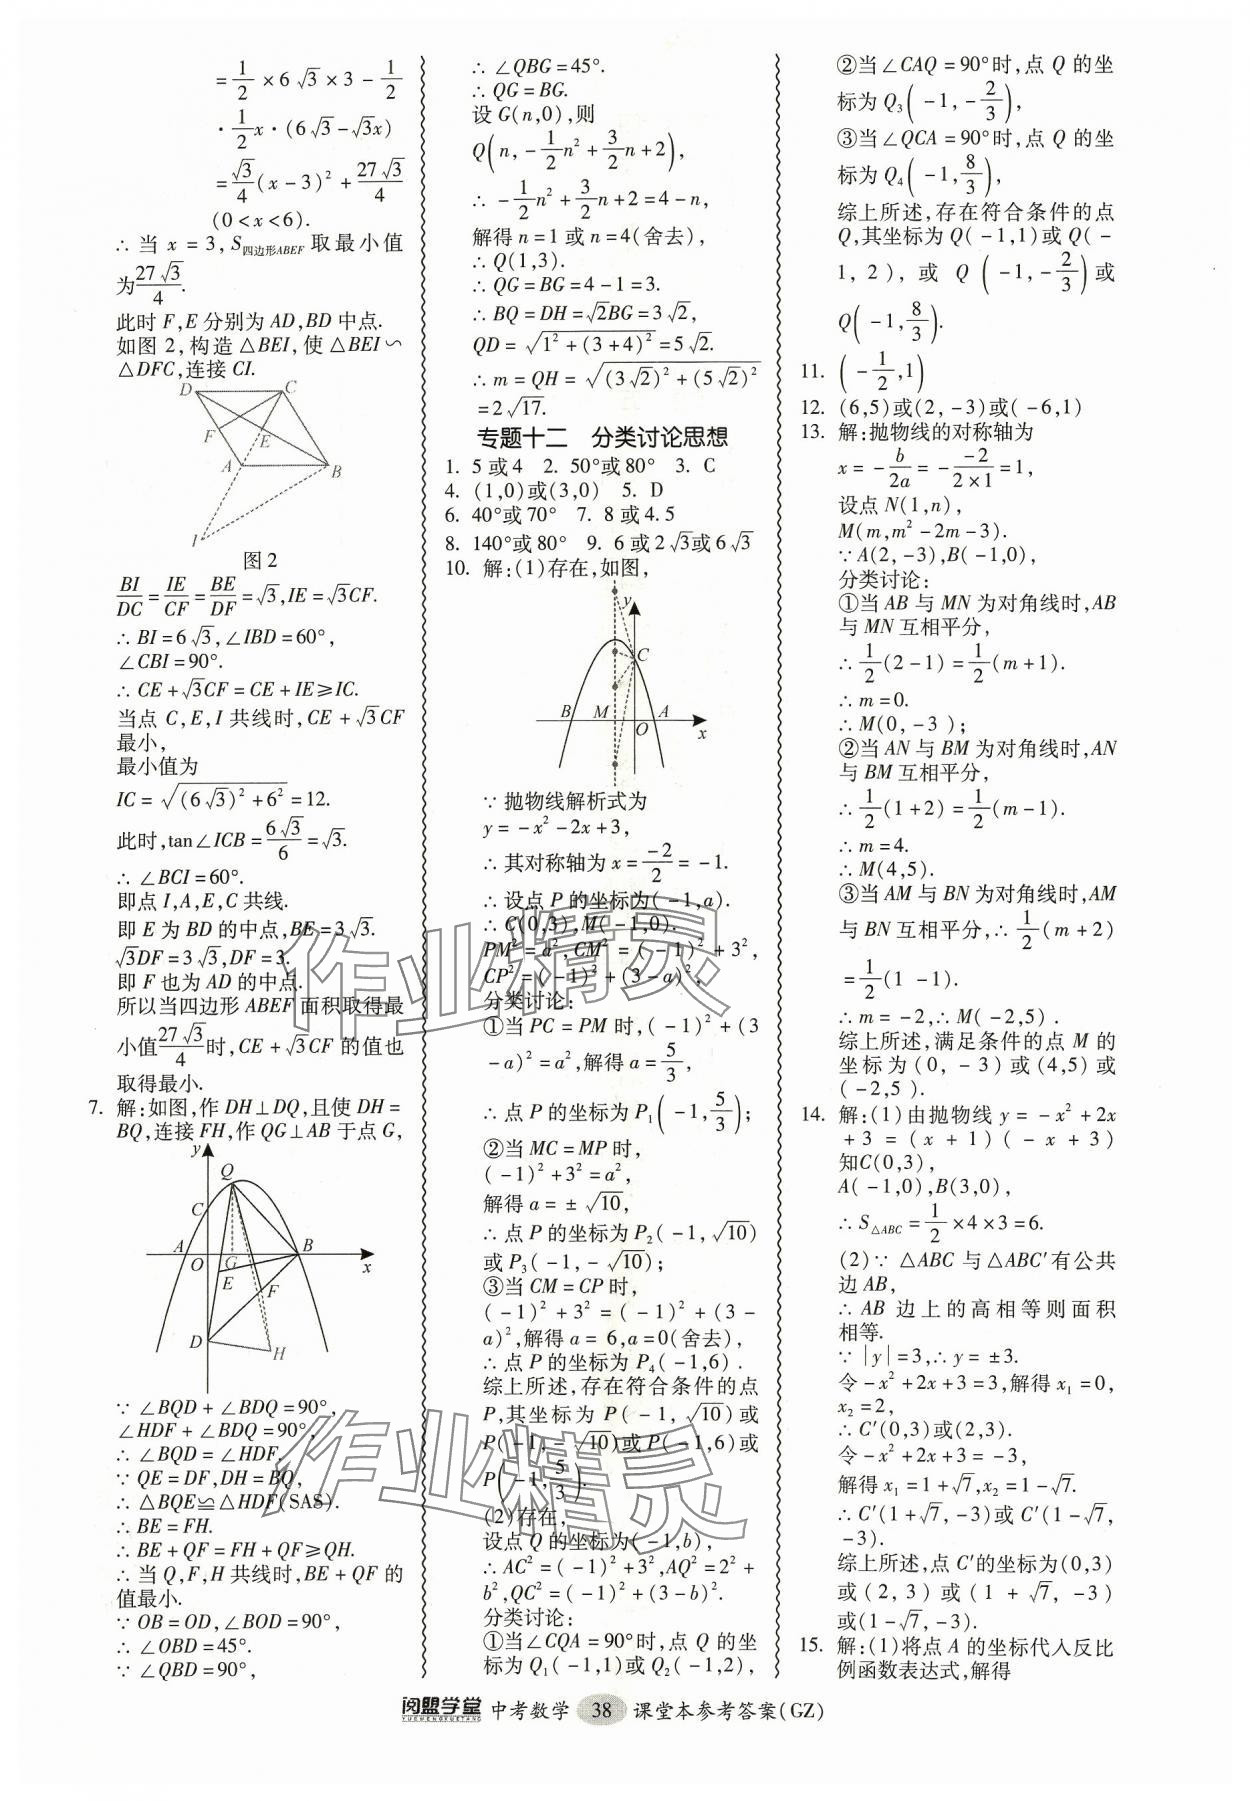 =1/2×6√3×3-1/2
·1/2x·(6√3-√3x)
=√3/4(x-3)²+27√3/4
(0<x<6).
∴当 x=3,S四边形ABEF取最小值
为27√3/4.
此时 F,E 分别为 AD,BD 中点.
如图 2,构造△BEI,使△BEI∽
△DFC,连接 CI.
D C
F E
A B
I
图 2
BI/DC=IE/CF=BE/DF=√3,IE=√3CF.
∴BI=6√3,∠IBD=60°,
∠CBI=90°.
∴CE+√3CF=CE+IE≥IC.
当点 C,E,I 共线时,CE+√3CF
最小,
最小值为
IC=√((6√3)²+6²)=12.
此时,tan∠ICB=6√3/6=√3.
∴∠BCI=60°.
即点 I,A,E,C 共线.
即 E 为 BD 的中点,BE=3√3.
√3DF=3√3,DF=3.
即 F 也为 AD 的中点.
所以当四边形 ABEF 面积取得最
小值27√3/4时,CE+√3CF 的值也
取得最小.
7. 解:如图,作 DH⊥DQ,且使 DH=
BQ,连接 FH,作 QG⊥AB 于点 G,
y
Q
C
A O G B x
E F
D H
∵∠BQD+∠BDQ=90°,
∠HDF+∠BDQ=90°,
∴∠BQD=∠HDF.
∵QE=DF,DH=BQ,
∴△BQE≌△HDF(SAS).
∴BE=FH.
∴BE+QF=FH+QF≥QH.
∴当 Q,F,H 共线时,BE+QF 的
值最小.
∵OB=OD,∠BOD=90°,
∴∠OBD=45°.
∵∠QBD=90°,
∴∠QBG=45°.
∴QG=BG.
设 G(n,0),则
Q(n,-1/2n²+3/2n+2),
∴-1/2n²+3/2n+2=4-n,
解得 n=1 或 n=4(舍去),
∴Q(1,3).
∴QG=BG=4-1=3.
∴BQ=DH=√2BG=3√2,
QD=√(1²+(3+4)²)=5√2.
∴m=QH=√((3√2)²+(5√2)²)
=2√17.
专题十二 分类讨论思想
1. 5 或 4 2. 50°或 80° 3. C
4. (1,0)或(3,0) 5. D
6. 40°或 70° 7. 8 或 4.5
8. 140°或 80° 9. 6 或 2√3或 6√3
10. 解:(1)存在,如图,
y
C
B M O A x
∵抛物线解析式为
y=-x²-2x+3,
∴其对称轴为 x=-2/2=-1.
∴设点 P 的坐标为(-1,a).
∴C(0,3),M(-1,0).
PM²=a²,CM²=(-1)²+3²,
CP²=(-1)²+(3-a)²,
分类讨论:
①当 PC=PM 时,(-1)²+(3
-a)²=a²,解得 a=5/3,
∴点 P 的坐标为 P₁(-1,5/3);
②当 MC=MP 时,
(-1)²+3²=a²,
解得 a=±√10,
∴点 P 的坐标为 P₂(-1,√10)
或 P₃(-1,-√10);
③当 CM=CP 时,
(-1)²+3²=(-1)²+(3-
a)²,解得 a=6,a=0(舍去),
∴点 P 的坐标为 P₄(-1,6).
综上所述,存在符合条件的点
P,其坐标为 P(-1,√10)或
P(-1,-√10)或 P(-1,6)或
P(-1,5/3).
(2)存在,
设点 Q 的坐标为(-1,b),
∴AC²=(-1)²+3²,AQ²=2²+
b²,QC²=(-1)²+(3-b)².
分类讨论:
①当∠CQA=90°时,点 Q 的坐
标为 Q₁(-1,1)或 Q₂(-1,2),
②当∠CAQ=90°时,点 Q 的坐
标为 Q₃(-1,-2/3),
③当∠QCA=90°时,点 Q 的坐
标为 Q₄(-1,8/3),
综上所述,存在符合条件的点
Q,其坐标为 Q(-1,1)或 Q(-
1,2),或 Q(-1,-2/3)或
Q(-1,8/3).
11. (-1/2,1)
12. (6,5)或(2,-3)或(-6,1)
13. 解:抛物线的对称轴为
x=-b/2a=--2/2×1=1,
设点 N(1,n),
M(m,m²-2m-3).
∵A(2,-3),B(-1,0),
分类讨论:
①当 AB 与 MN 为对角线时,AB
与 MN 互相平分,
∴1/2(2-1)=1/2(m+1).
∴m=0.
∴M(0,-3);
②当 AN 与 BM 为对角线时,AN
与 BM 互相平分,
∴1/2(1+2)=1/2(m-1).
∴m=4.
∴M(4,5).
③当 AM 与 BN 为对角线时,AM
与 BN 互相平分,∴1/2(m+2)
=1/2(1-1).
∴m=-2,∴M(-2,5).
综上所述,满足条件的点 M 的
坐标为(0,-3)或(4,5)或
(-2,5).
14. 解:(1)由抛物线 y=-x²+2x
+3=(x+1)(-x+3)
知C(0,3),
A(-1,0),B(3,0),
∴S△ABC=1/2×4×3=6.
(2)∵△ABC 与△ABC′有公共
边 AB,
∴AB 边上的高相等则面积
相等.
∵|y|=3,∴y=±3.
令-x²+2x+3=3,解得 x₁=0,
x₂=2,
∴C′(0,3)或(2,3).
令-x²+2x+3=-3,
解得 x₁=1+√7,x₂=1-√7.
∴C′(1+√7,-3)或 C′(1-√7,
-3).
综上所述,点 C′的坐标为(0,3)
或(2,3)或(1+√7,-3)
或(1-√7,-3).
15. 解:(1)将点 A 的坐标代入反比
例函数表达式,解得
作业精灵
作业精灵
阅盟学堂 中考数学 38 课堂本参考答案(GZ)
YUEMENGXUETANG